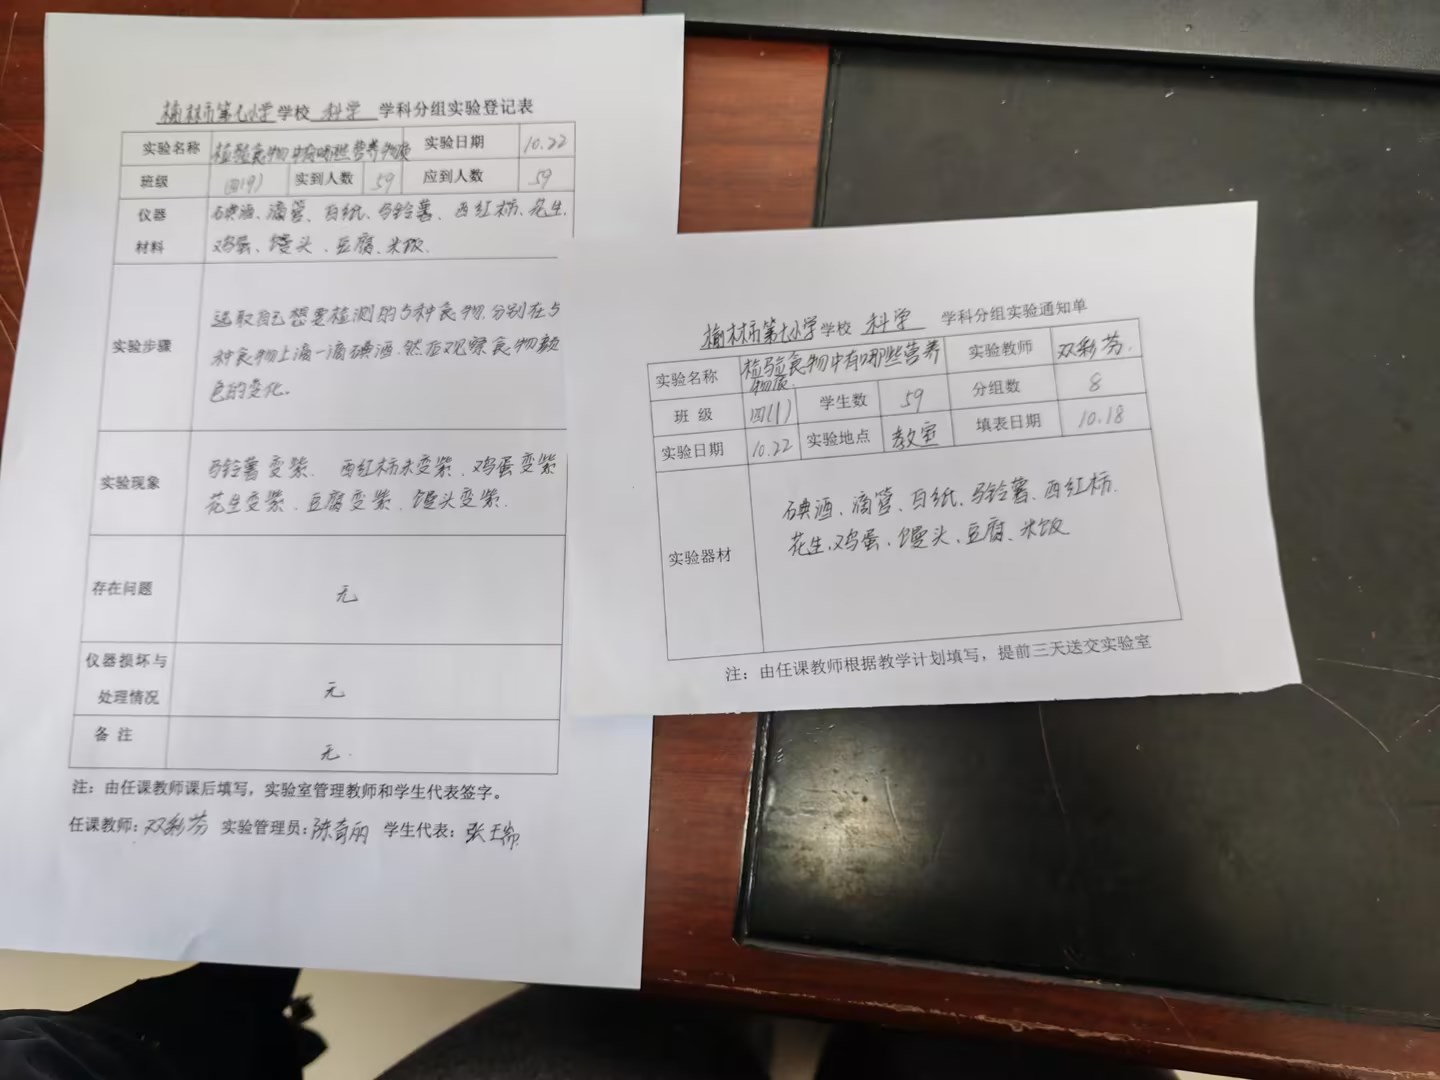 榆林市第七小学学校 科学 学科分组实验登记表
实验名称 检验食物中有哪些营养物质 实验日期 10.22
班级 四(9) 实到人数 59 应到人数 59
仪器材料 碘酒、滴管、白纸、马铃薯、西红柿、花生、
鸡蛋、馒头、豆腐、米饭.
实验步骤
选取自己想要检测的5种食物,分别在5
种食物上滴一滴碘酒.然后观察食物颜
色的变化.
实验现象
马铃薯变紫. 西红柿未变紫、鸡蛋变紫
花生变紫、豆腐变紫、馒头变紫.
存在问题 无
仪器损坏与处理情况 无
备注 无.
注：由任课教师课后填写，实验室管理教师和学生代表签字。
任课教师：双彩芬 实验管理员： 学生代表：
榆林市第七小学学校 科学 学科分组实验通知单
实验名称 检验食物中有哪些营养物质. 实验教师 双彩芬.
班级 四(1) 学生数 59 分组数 8
实验日期 10.22 实验地点 教室 填表日期 10.18
实验器材
碘酒、滴管、白纸、马铃薯、西红柿.
花生、鸡蛋、馒头、豆腐、米饭
注：由任课教师根据教学计划填写，提前三天送交实验室